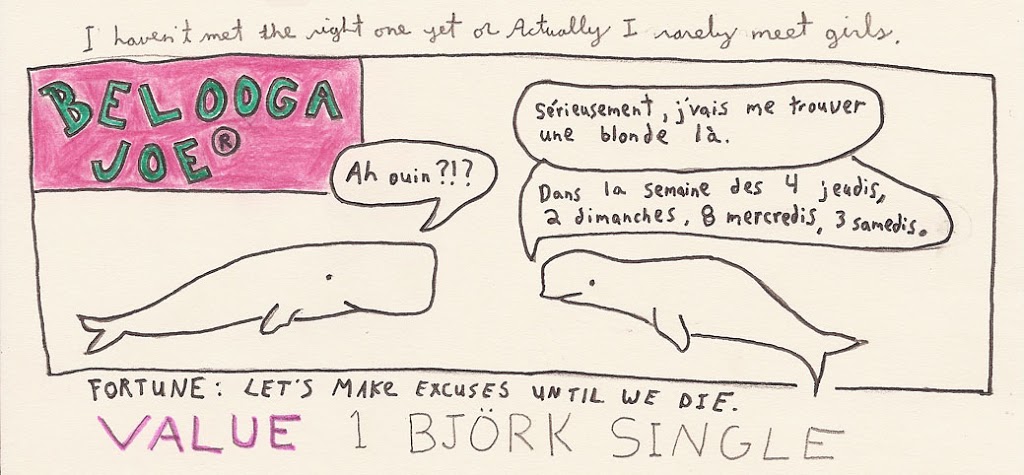 I haven't met the right one yet or Actually I rarely meet girls.
BELOOGA
JOE®
Ah ouin ?!?
Sérieusement, j'vais me trouver
une blonde là.
Dans la semaine des 4 jeudis,
2 dimanches, 8 mercredis, 3 samedis.
FORTUNE: LET'S MAKE EXCUSES UNTIL WE DIE.
VALUE 1 BJÖRK SINGLE